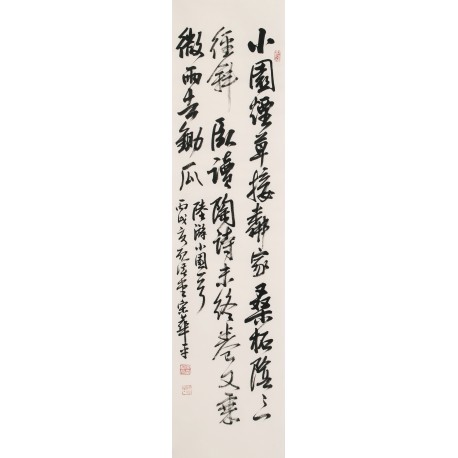 小園煙草接鄰家桑柘陰〻一
徑斜臥讀陶詩未終卷又乘
微雨去鋤瓜陸游小園一首
丙戌宋華平